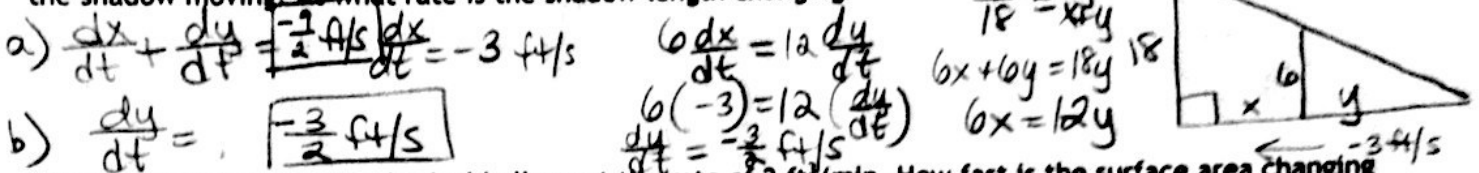 the shadow moving? At what rate is the shadow length changing
a) dx/dt + dy/dt = -9/2 ft/s dx/dt = -3 ft/s
b) dy/dt = -3/2 ft/s
6 dx/dt = 12 dy/dt
6(-3) = 12 (dy/dt)
dy/dt = -3/2 ft/s
18 = x+y
6x + 6y = 18y
6x = 12y
18
6
x
y
-3 ft/s
How fast is the surface area changing